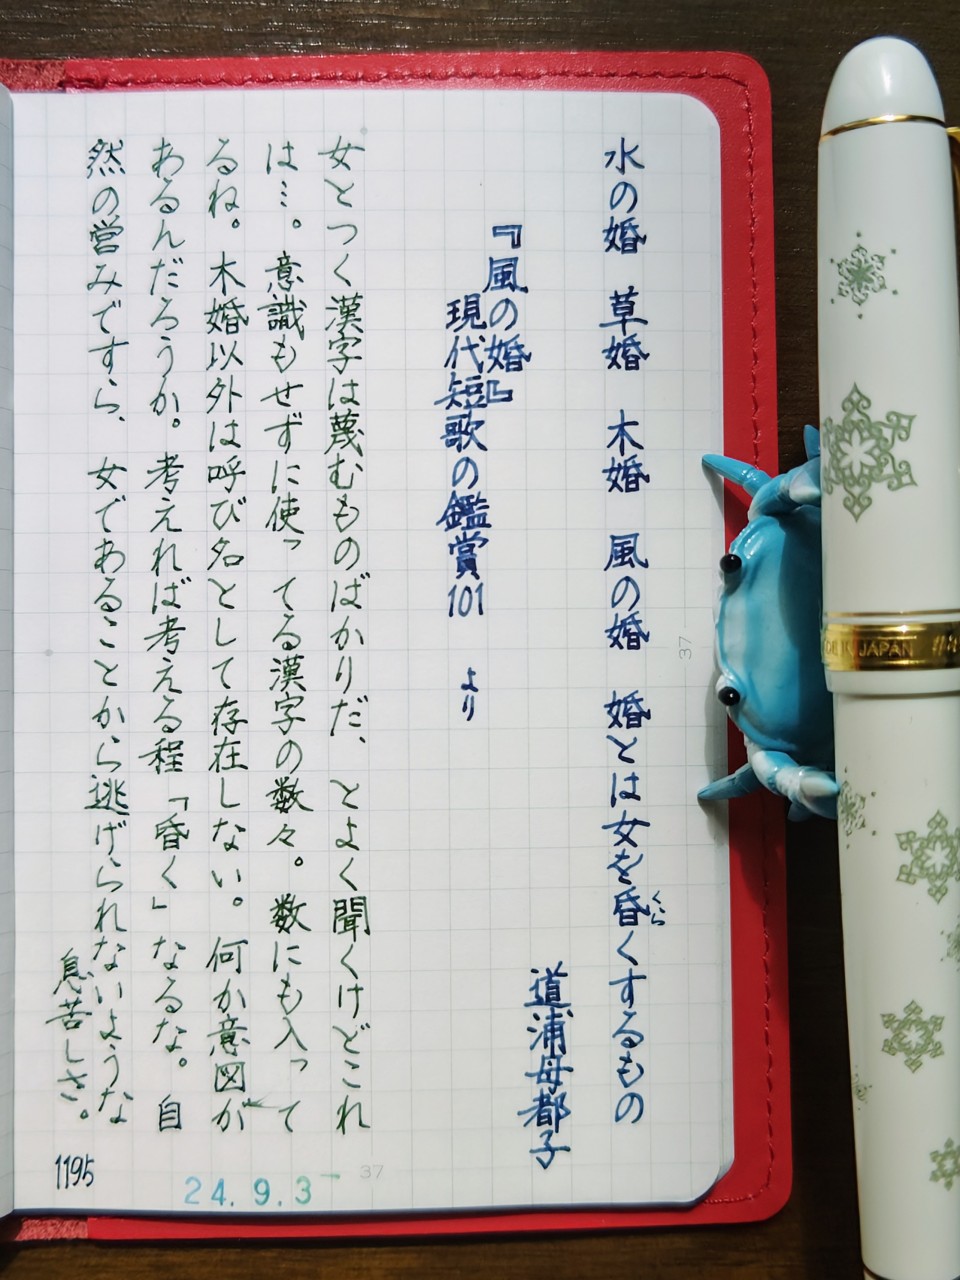 水の婚 草婚 木婚 風の婚 婚とは女を昏くするもの
くら
道浦母都子
『風の婚』
現代短歌の鑑賞101 より
女とつく漢字は蔑むものばかりだ、とよく聞くけどこれ
は…。意識もせずに使ってる漢字の数々。数にも入って
るね。木婚以外は呼び名として存在しない。何か意図が
あるんだろうか。考えれば考える程「昏く」なるな。自
然の営みですら、女であることから逃げられないような
息苦しさ。
1195
24.9.3
37
37
JAPAN